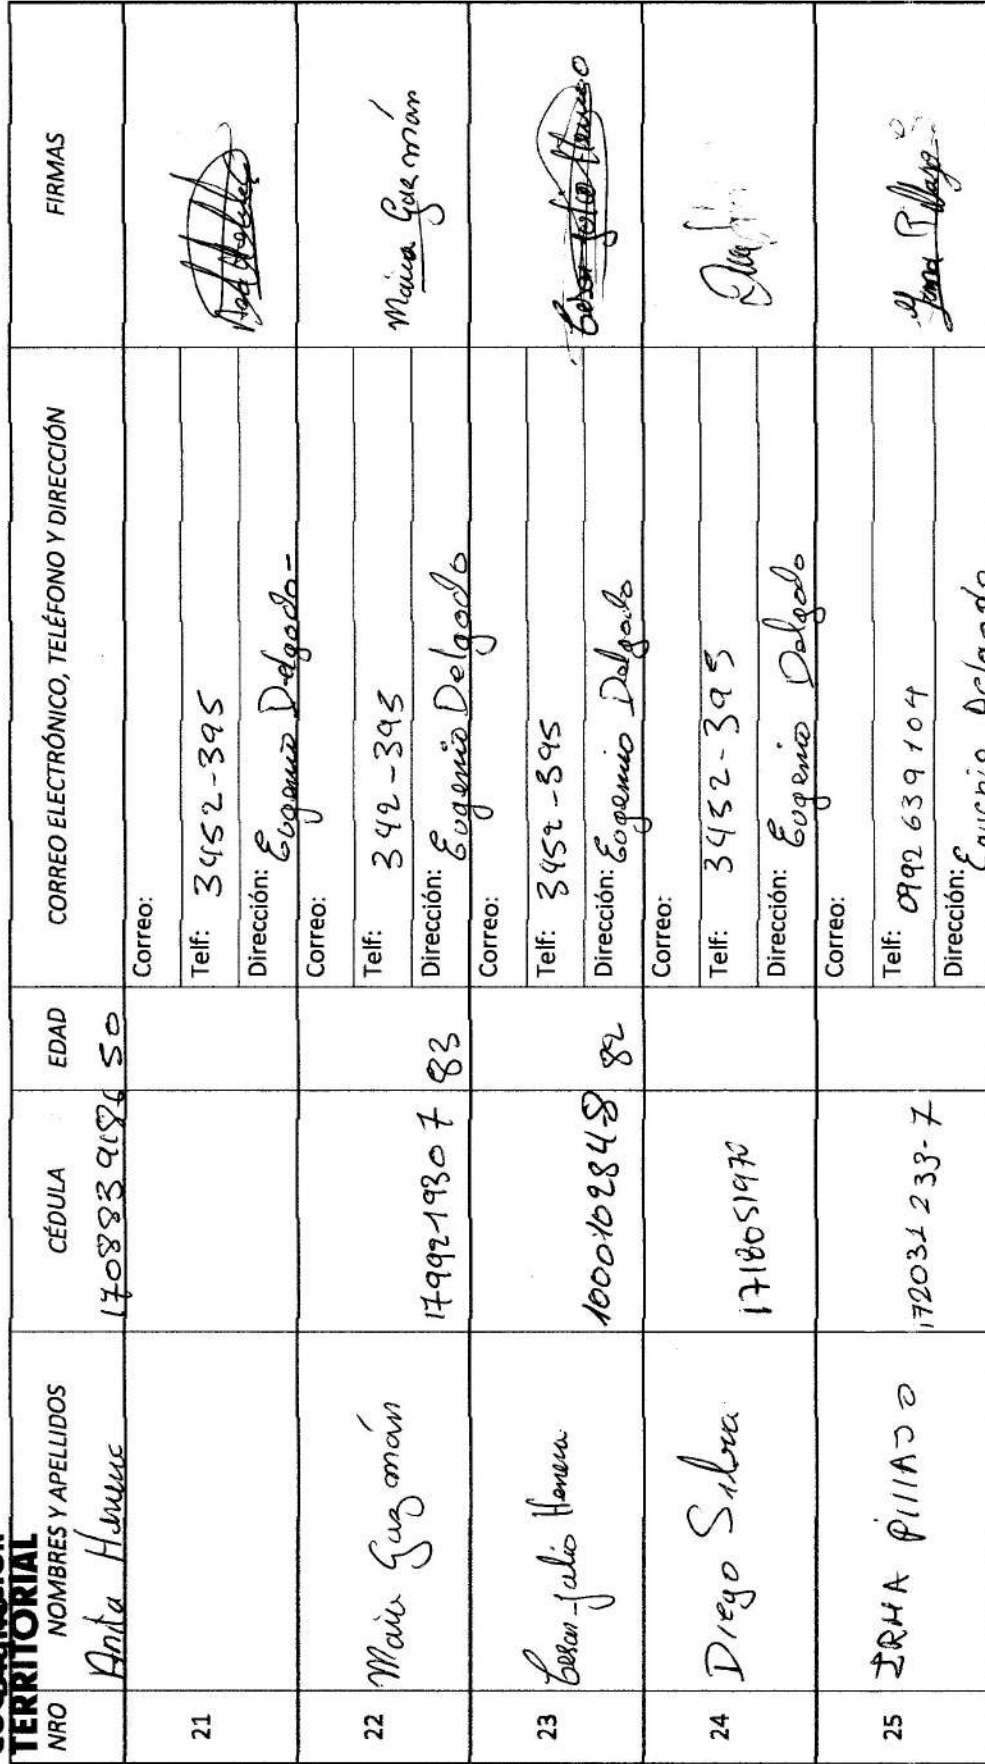 TERRITORIAL
NRO NOMBRES Y APELLIDOS CÉDULA EDAD CORREO ELECTRÓNICO, TELÉFONO Y DIRECCIÓN FIRMAS
Anita 50
21
Correo:
Telf: 3452-395
Dirección: Eugenio Delgado-
22 Maria Guzmán 1799219307 83
Correo:
Telf: 342-395
Dirección: Eugenio Delgado
Maria Guzmán
23 Cesar Julio Herrera 1000102848 82
Correo:
Telf: 3452-395
Dirección: Eugenio Delgado
Cesar Julio Herrera
24 Diego Silva 1718051970
Correo:
Telf: 3452-395
Dirección: Eugenio Delgado
25 IRMA PIllAJO 172031233-7
Correo:
Telf: 0992639104
Dirección: Eugenio Delgado